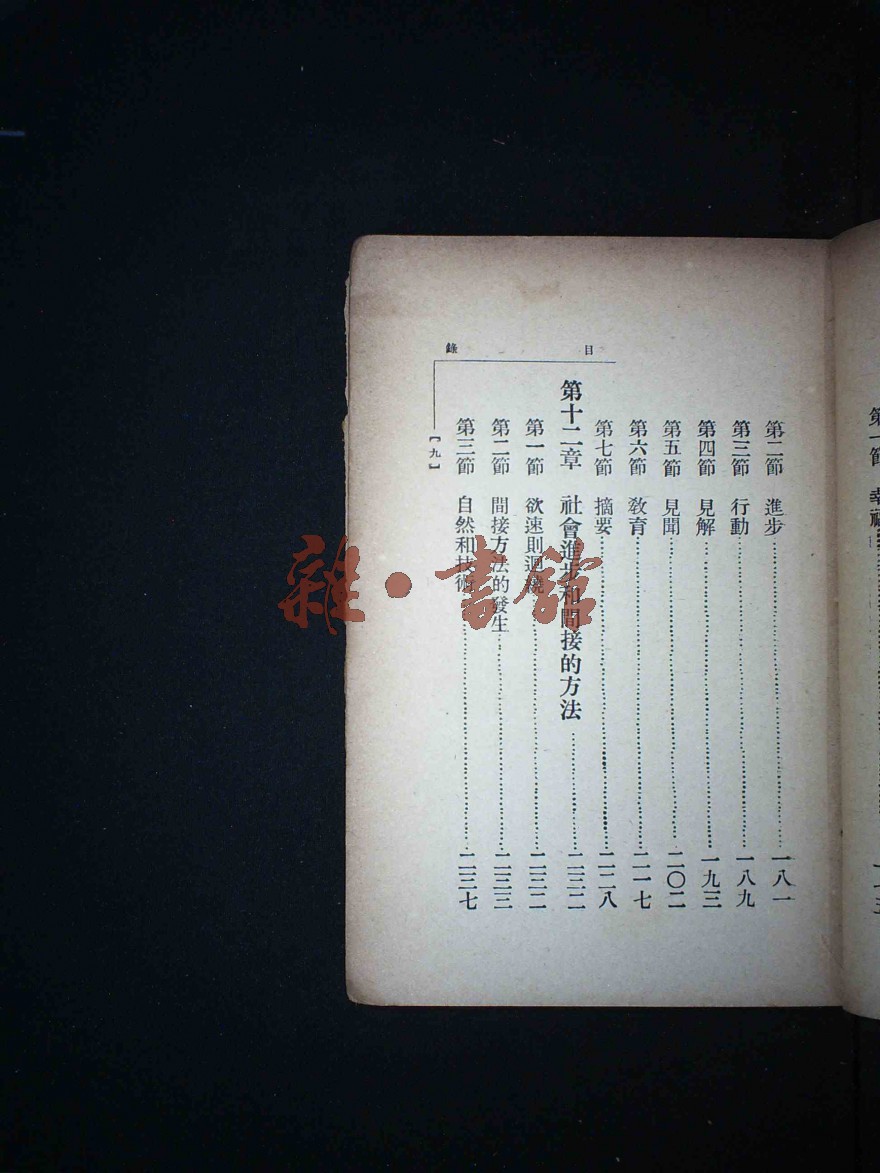 第一節　幸福
目錄
第二節　進步……一八一
第三節　行動……一八九
第四節　見解……一九三
第五節　見聞……二〇二
第六節　敎育……二一七
第七節　摘要……二二八
第十二章　社會進步和間接的方法……二三二
第一節　欲速則迴繞……二三二
第二節　間接方法的發生……二三三
第三節　自然和技術……二三七
【九】
雜·書館